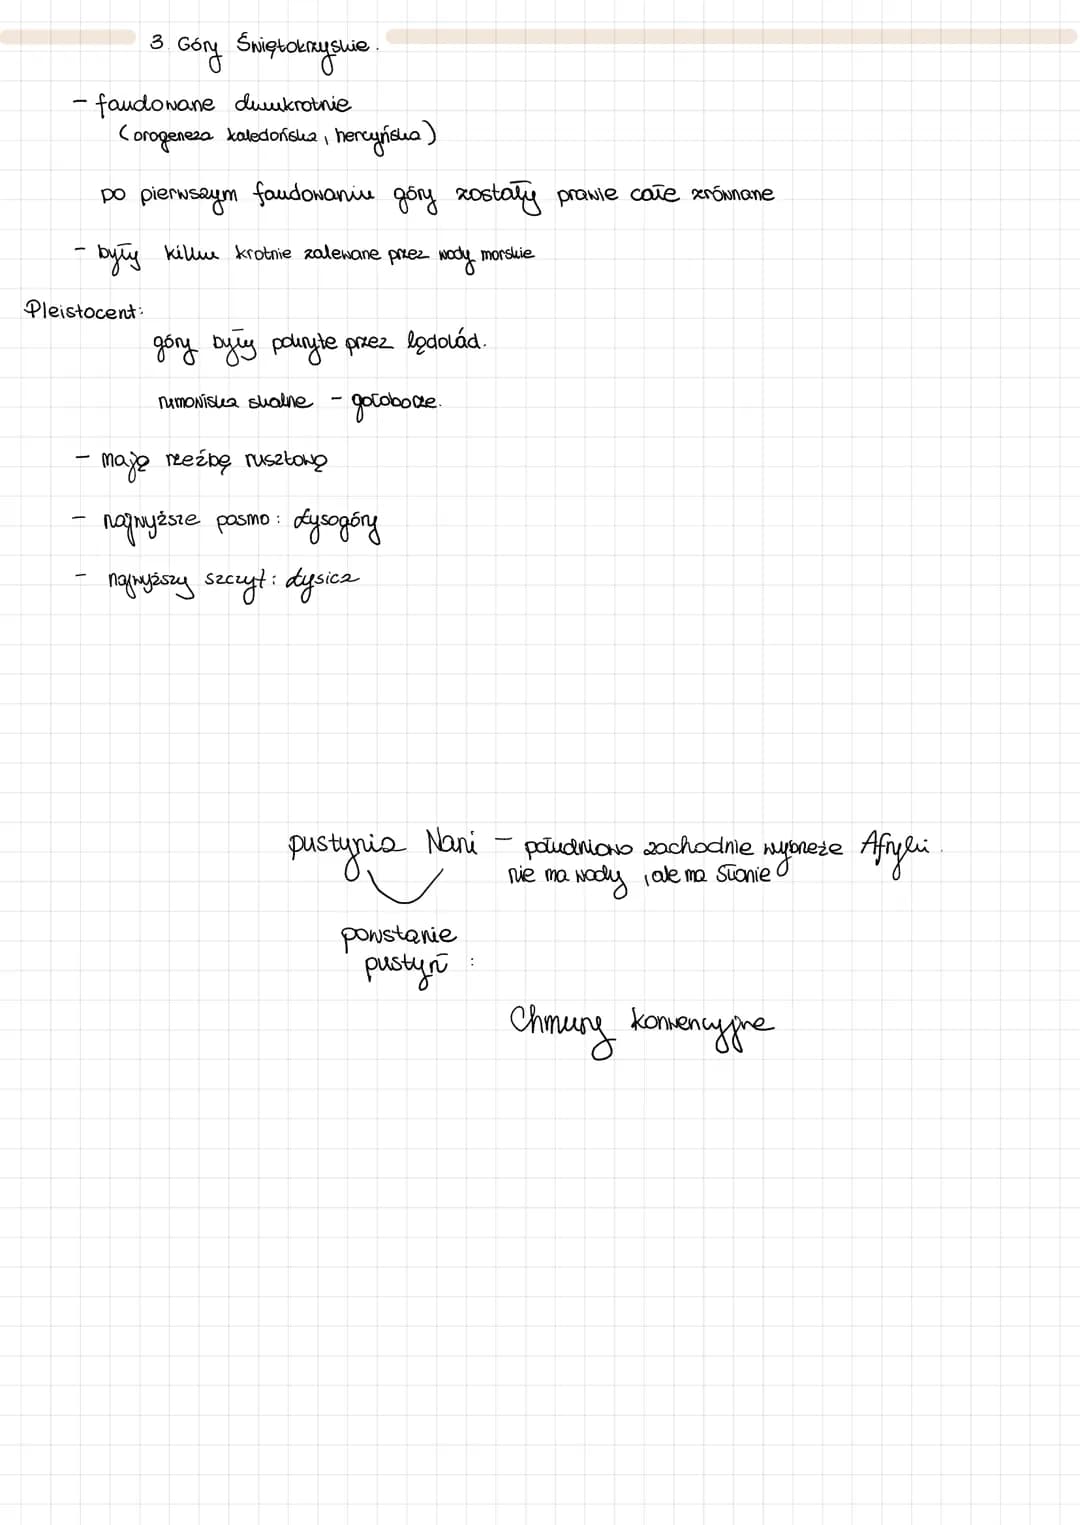 3. Góry Świętokrzyskie.
- fałdowane dwukrotnie
(orogeneza kaledońska, hercyńska)
po pierwszym fałdowaniu góry zostały prawie całe zrównane
- były kilku krotnie zalewane przez wody morskie
Pleistocent:
góry były pokryte przez lądolád.
rumowiska skalne - gołoborze.
- mają rzeźbę rusztową
- najwyższe pasmo: Łysogóry
- najwyższy szczyt: Łysica
pustynia Nani - południowo zachodnie wybrzeże Afryki.
nie ma wody, ale ma słonie
powstanie
pustyń :
Chmury konwencyjne